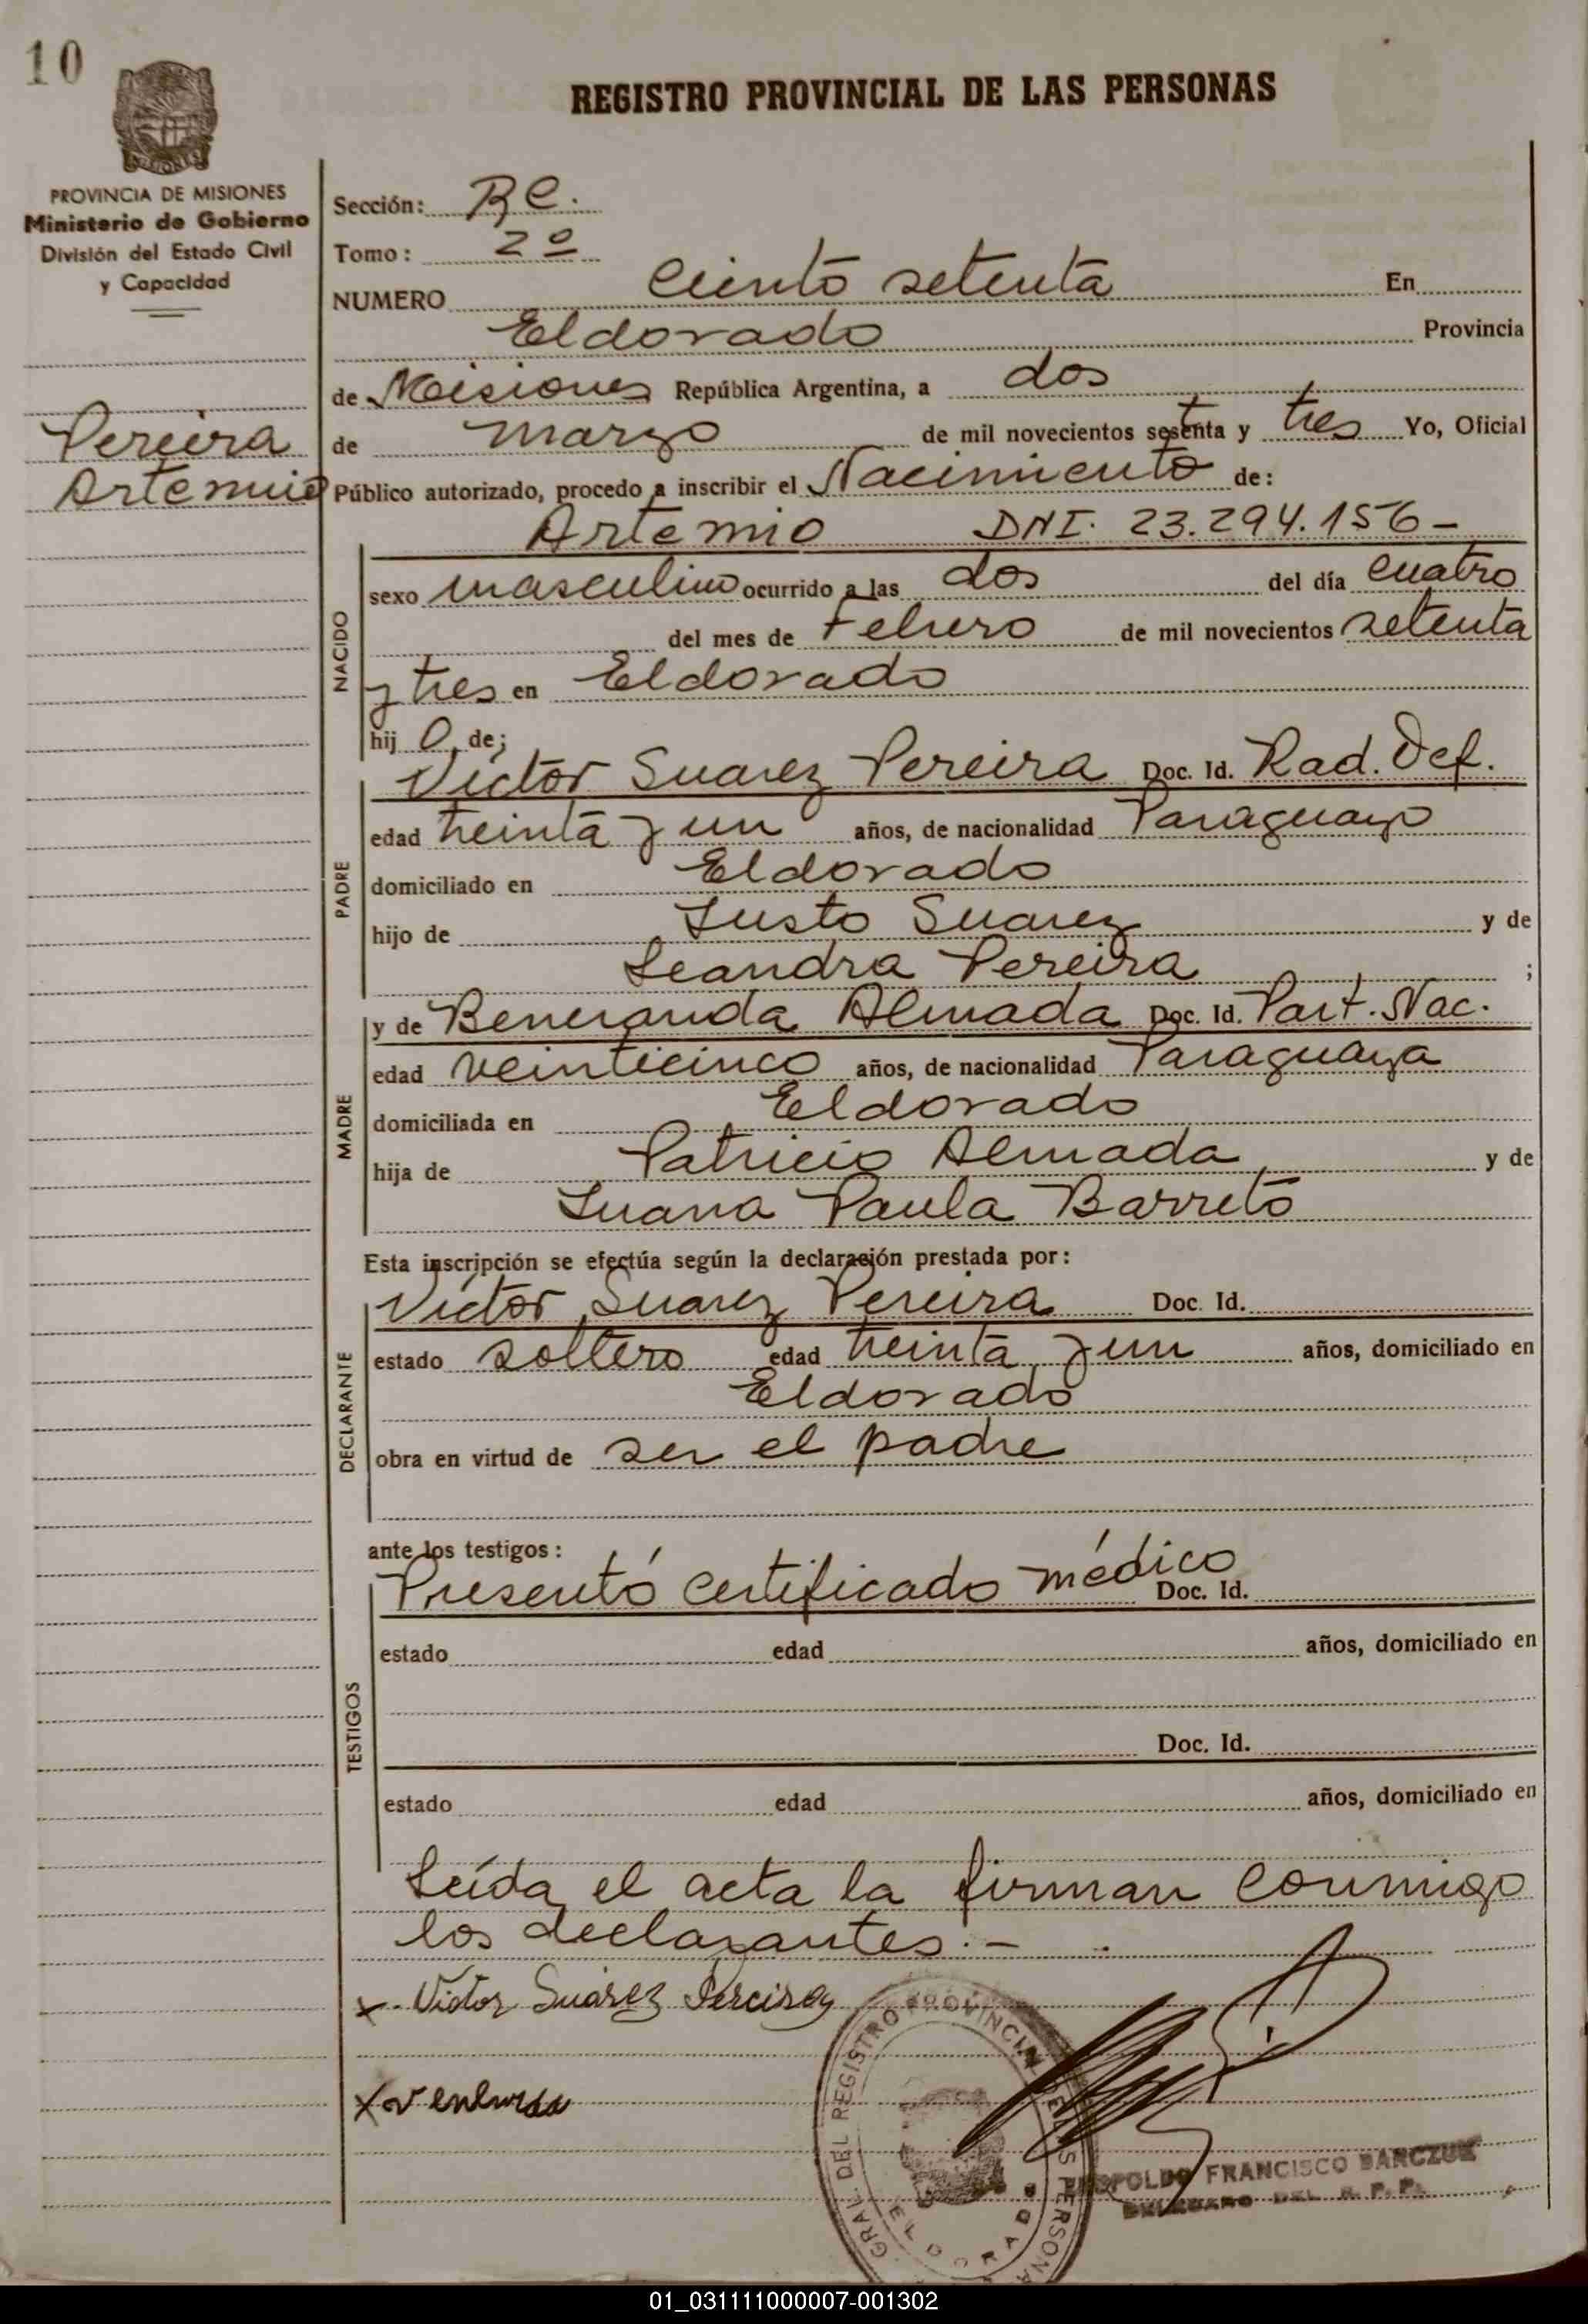 10
REGISTRO PROVINCIAL DE LAS PERSONAS
PROVINCIA DE MISIONES
Ministerio de Gobierno
División del Estado Civil
y Capacidad
Pereira
Artemio
Sección: RC.
Tomo: 2º
NUMERO Ciento setenta En
Eldorado Provincia
de Misiones República Argentina, a dos
de marzo de mil novecientos setenta y tres Yo, Oficial
Público autorizado, procedo a inscribir el Nacimiento de:
Artemio DNI. 23.294.156-
NACIDO
sexo masculino ocurrido a las dos del día cuatro
del mes de Febrero de mil novecientos setenta
y tres en Eldorado
hij o de;
PADRE
Víctor Suarez Pereira Doc. Id. Rad. Def.
edad treinta y un años, de nacionalidad Paraguayo
domiciliado en Eldorado
hijo de Justo Suarez y de
Leandra Pereira ;
MADRE
y de Beneranda Almada Doc. Id. Part. Nac.
edad veinticinco años, de nacionalidad Paraguaya
domiciliada en Eldorado
hija de Patricio Almada y de
Juana Paula Barreto
Esta inscripción se efectúa según la declaración prestada por:
DECLARANTE
Víctor Suarez Pereira Doc. Id.
estado soltero edad treinta y un años, domiciliado en
Eldorado
obra en virtud de ser el padre
ante los testigos:
TESTIGOS
Presentó certificado médico Doc. Id.
estado edad años, domiciliado en
Doc. Id.
estado edad años, domiciliado en
Leída el acta la firman conmigo
los declarantes.-
x- Victor Suárez Pereira
x
GRAL. DEL REGISTRO PROVINCIAL DE LAS PERSONAS
ELDORADO
LEOPOLDO FRANCISCO BARCZUK
DELEGADO DEL R. P. P.
01_031111000007-001302